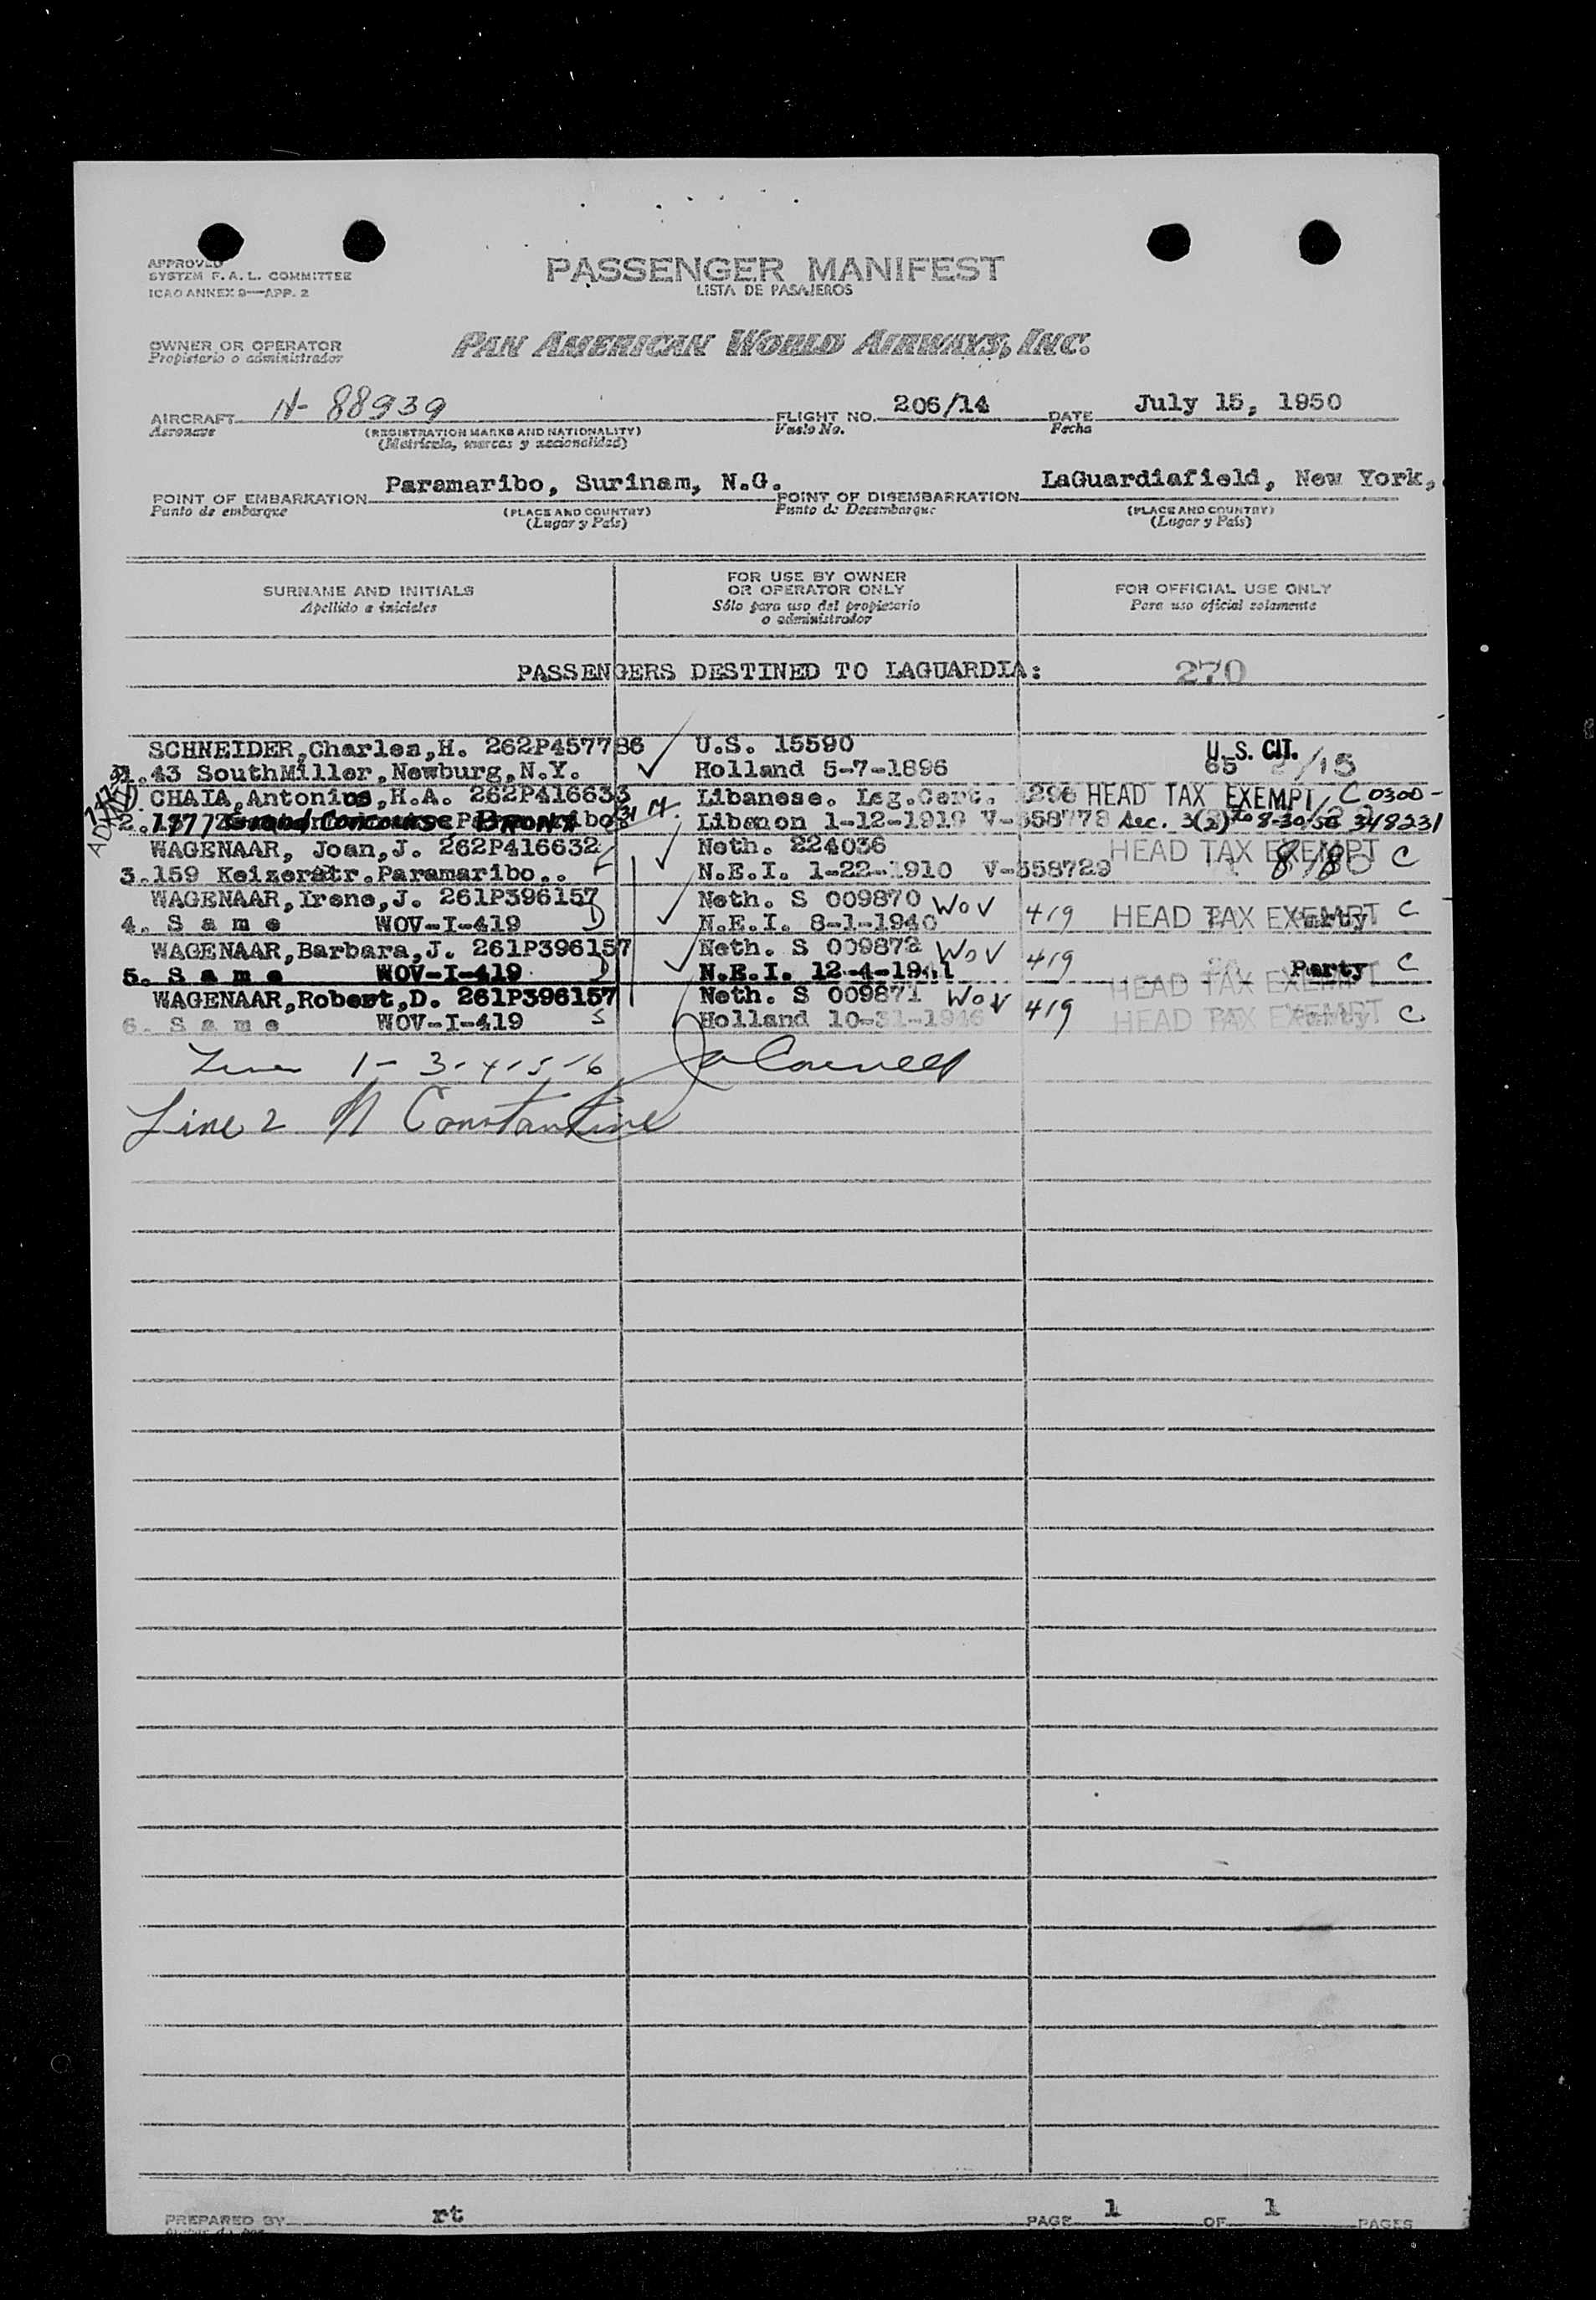 APPROVED
SYSTEM F.A.L. COMMITTEE
ICAO ANNEX 9—APP. 2
PASSENGER MANIFEST
LISTA DE PASAJEROS
OWNER OR OPERATOR
Propietario o administrador
PAN AMERICAN WORLD AIRWAYS, INC.
AIRCRAFT N-88939 FLIGHT NO. 206/14 DATE July 15, 1950
Aeronave (REGISTRATION MARKS AND NATIONALITY) Vuelo No. Fecha
(Matrícula, marcas y nacionalidad)
POINT OF EMBARKATION Paramaribo, Surinam, N.G. POINT OF DISEMBARKATION LaGuardiafield, New York,
Punto de embarque (PLACE AND COUNTRY) Punto de Desembarque (PLACE AND COUNTRY)
(Lugar y País) (Lugar y País)
SURNAME AND INITIALS FOR USE BY OWNER OR OPERATOR ONLY FOR OFFICIAL USE ONLY
Apellido e iniciales Sólo para uso del propietario o administrador Para uso oficial solamente
PASSENGERS DESTINED TO LAGUARDIA: 270
SCHNEIDER,Charles,H. 262P457786 U.S. 15590 U.S. CIT.
1.43 SouthMiller,Newburg,N.Y. Holland 5-7-1896 65 /15
CHAIA,Antonius,H.A. 262P416633 Libanese. Leg.Cert. 1296 HEAD TAX EXEMPT C 0300-
2.1777 Grand Concourse BRONX Libanon 1-12-1919 V-558778 Sec. 3(2) to 8-30/50 348231
WAGENAAR, Joan,J. 262P416632 Neth. 224036 HEAD TAX EXEMPT C
3.159 Keizerstr.Paramaribo.. N.E.I. 1-22-1910 V-558729 8/80
WAGENAAR,Irene,J. 261P396157 Neth. S 009870 WOV 419 HEAD TAX EXEMPT C
4. S a m e WOV-I-419 N.E.I. 8-1-1940 Party
WAGENAAR,Barbara,J. 261P396157 Neth. S 009872 WOV 419
5. S a m e WOV-I-419 N.E.I. 12-4-1941 Party C HEAD TAX EXEMPT
WAGENAAR,Robert,D. 261P396157 Neth. S 009871 WOV 419 HEAD TAX EXEMPT C
6. S a m e WOV-I-419 Holland 10-31-1946 Party
1-3-4-5-6
Line 2 N Constantine
PREPARED BY rt PAGE 1 OF 1 PAGES